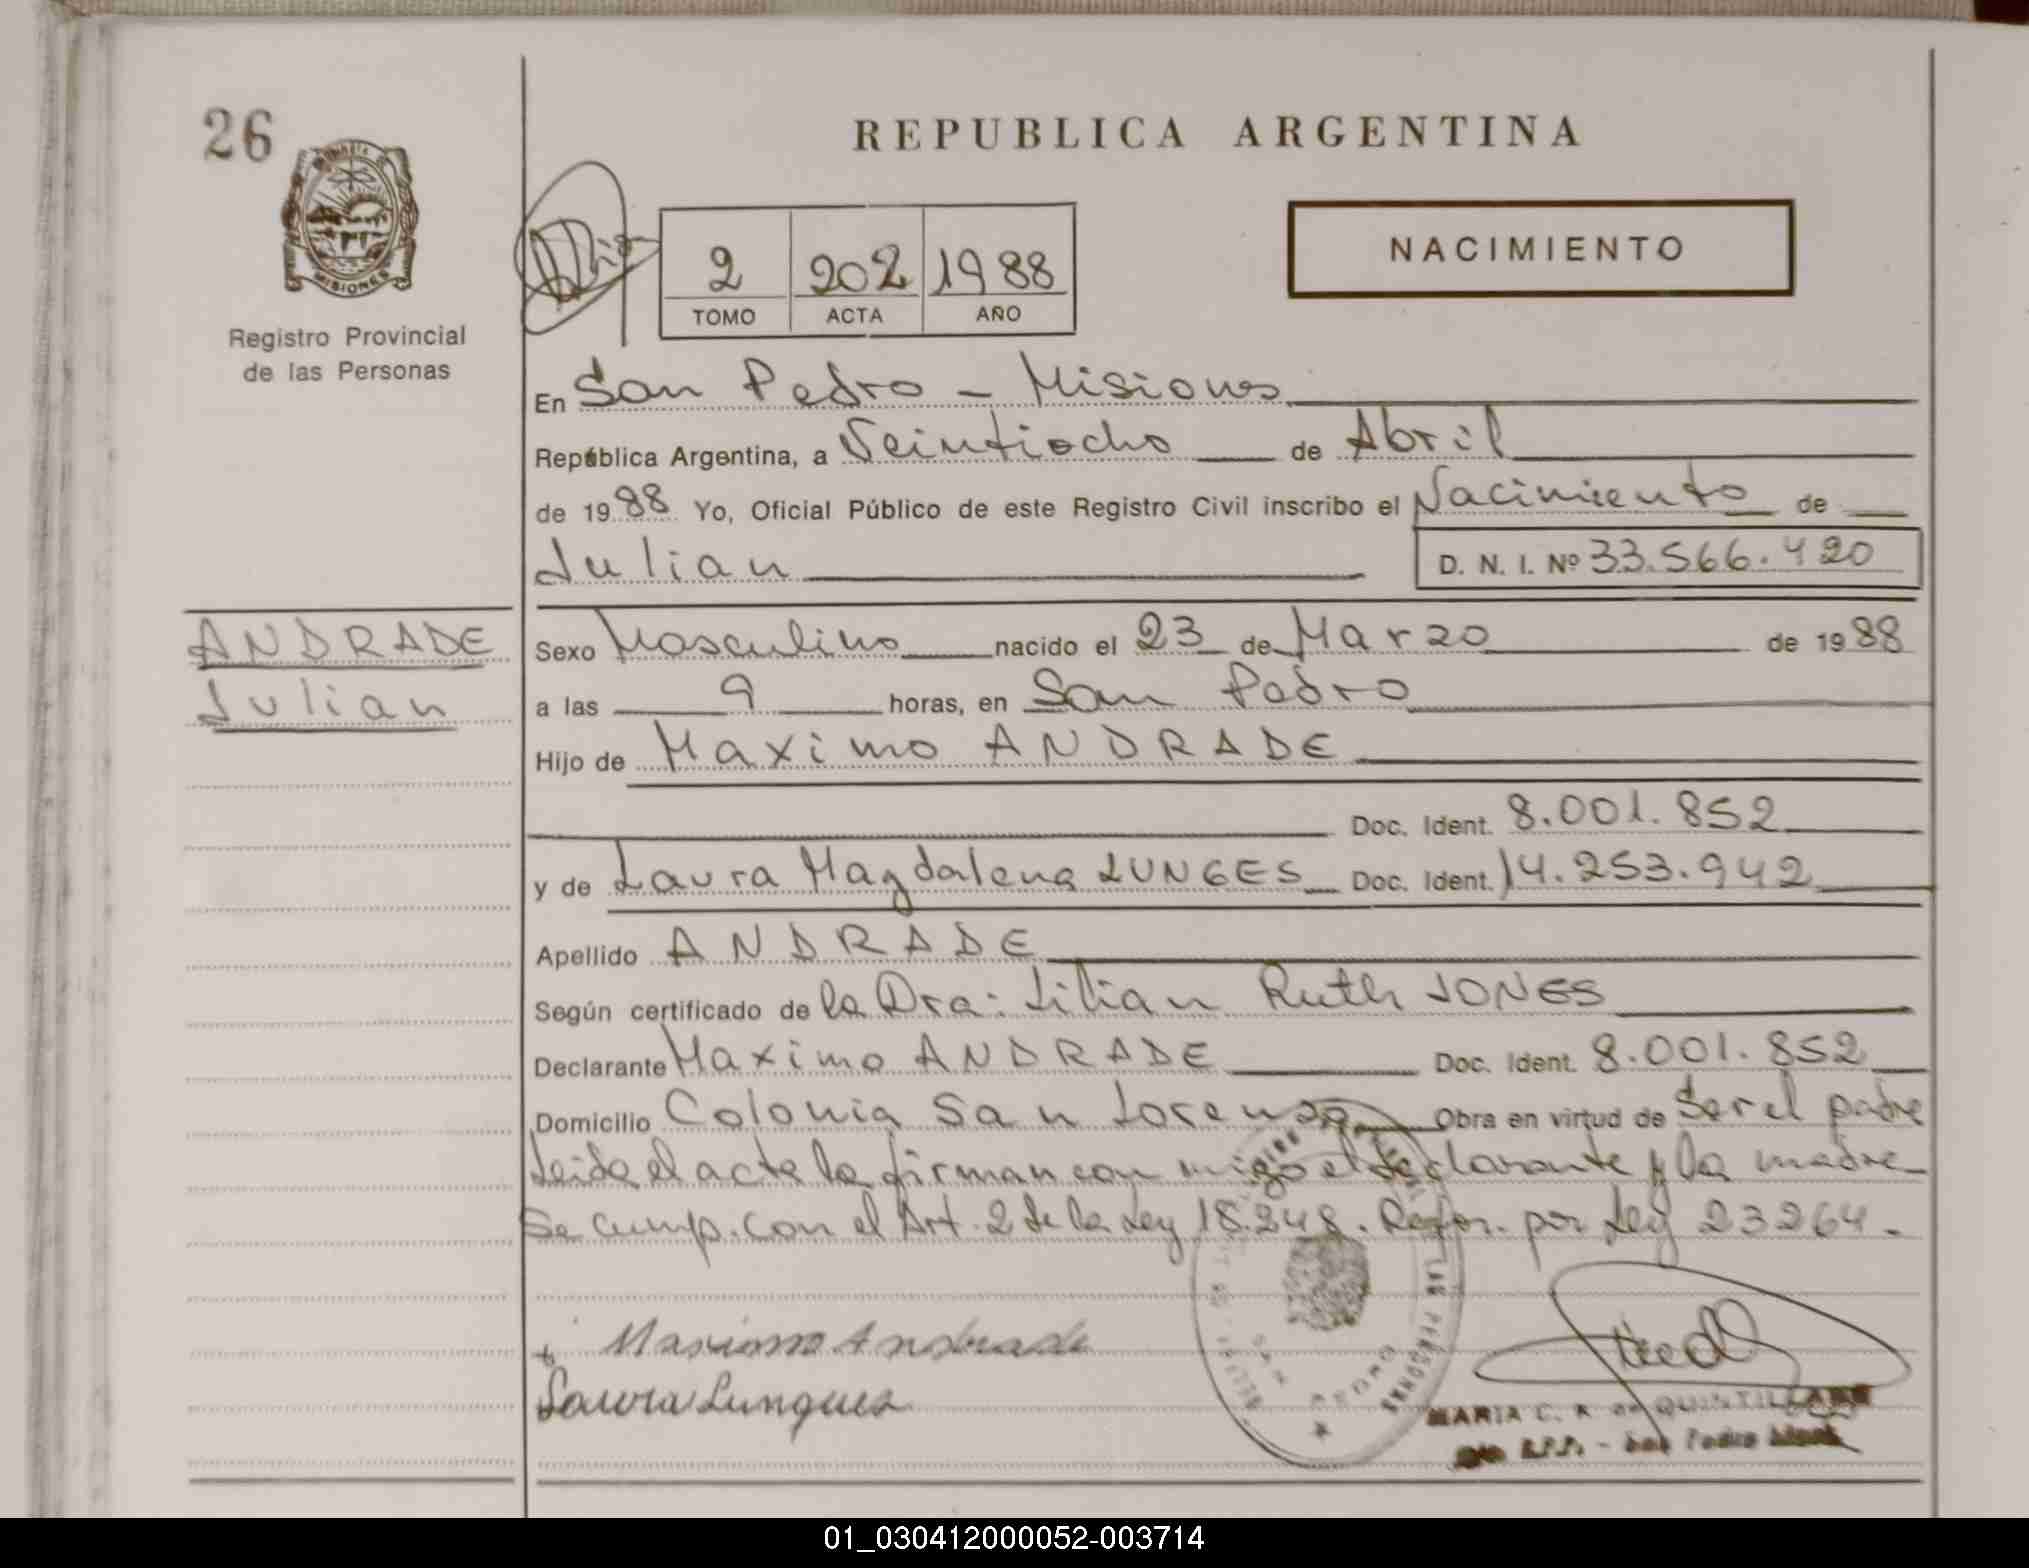 26
REPUBLICA ARGENTINA
MISIONES
Registro Provincial
de las Personas
2 202 1988
TOMO ACTA AÑO
NACIMIENTO
En San Pedro - Misiones
República Argentina, a Veintiocho de Abril
de 1988 Yo, Oficial Público de este Registro Civil inscribo el Nacimiento de
Julian D. N. I. Nº 33.566.420
ANDRADE
Julian
Sexo Masculino nacido el 23 de Marzo de 1988
a las 9 horas, en San Pedro
Hijo de Maximo ANDRADE
Doc. Ident. 8.001.852
y de Laura Magdalena LUNGES Doc. Ident. 14.253.942
Apellido ANDRADE
Según certificado de la Dra: Lilian Ruth JONES
Declarante Maximo ANDRADE Doc. Ident. 8.001.852
Domicilio Colonia San Lorenzo Obra en virtud de Ser el padre
Leida el acta la firman con migo el declarante y la madre
Se cump. con el Art. 2 de la Ley 18.248. Refor. por Ley 23264.
Maximo Andrade
Laura Lungues
LAS PERSONAS
MARIA C. R. de QUINTILLAN
R.P.P. - San Pedro
01_030412000052-003714